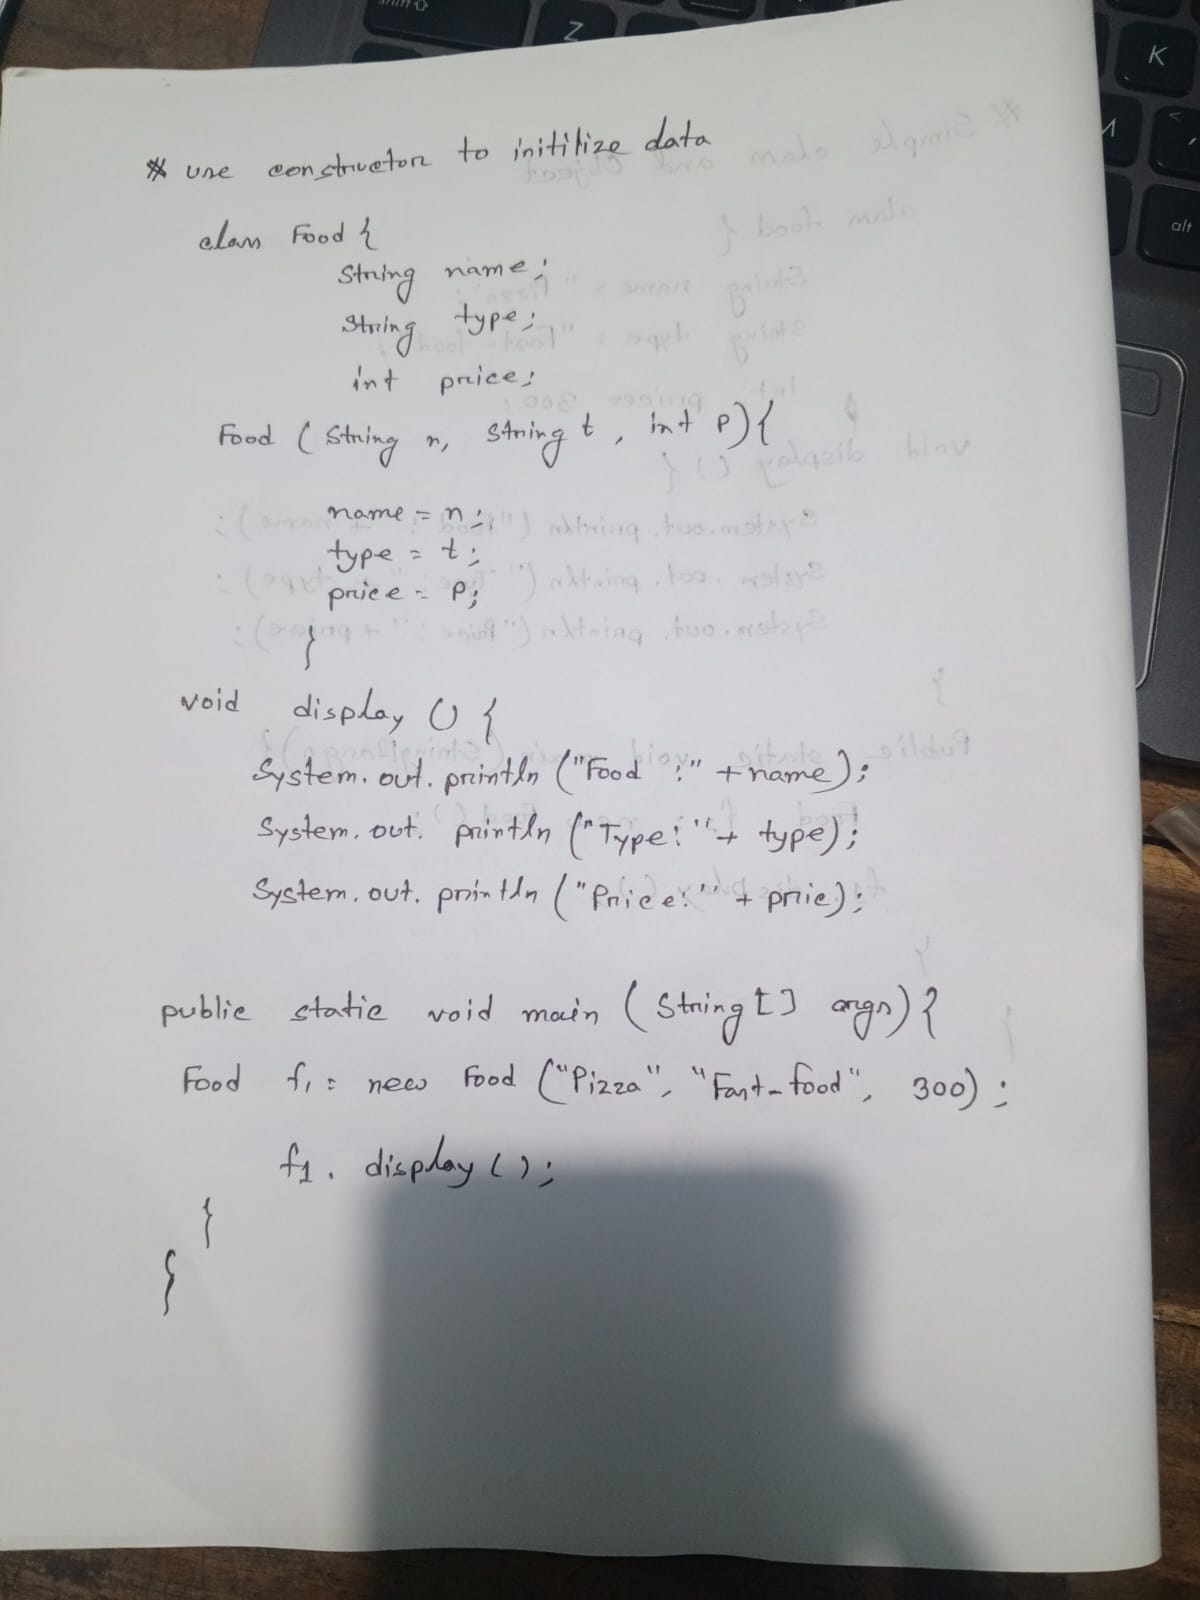 * use constructor to initilize data
class Food {
String name;
String type;
int price;
Food ( String n, String t, int p) {
name = n;
type = t;
price = p;
}
void display () {
System.out.println ("Food :" + name);
System.out.println ("Type:" + type);
System.out.println ("Price:" + prie);
public static void main ( String [] args) {
Food f1 = new Food ("Pizza", "Fast-food", 300) ;
f1. display ( );
}
}
shift
Z
K
M
<
alt